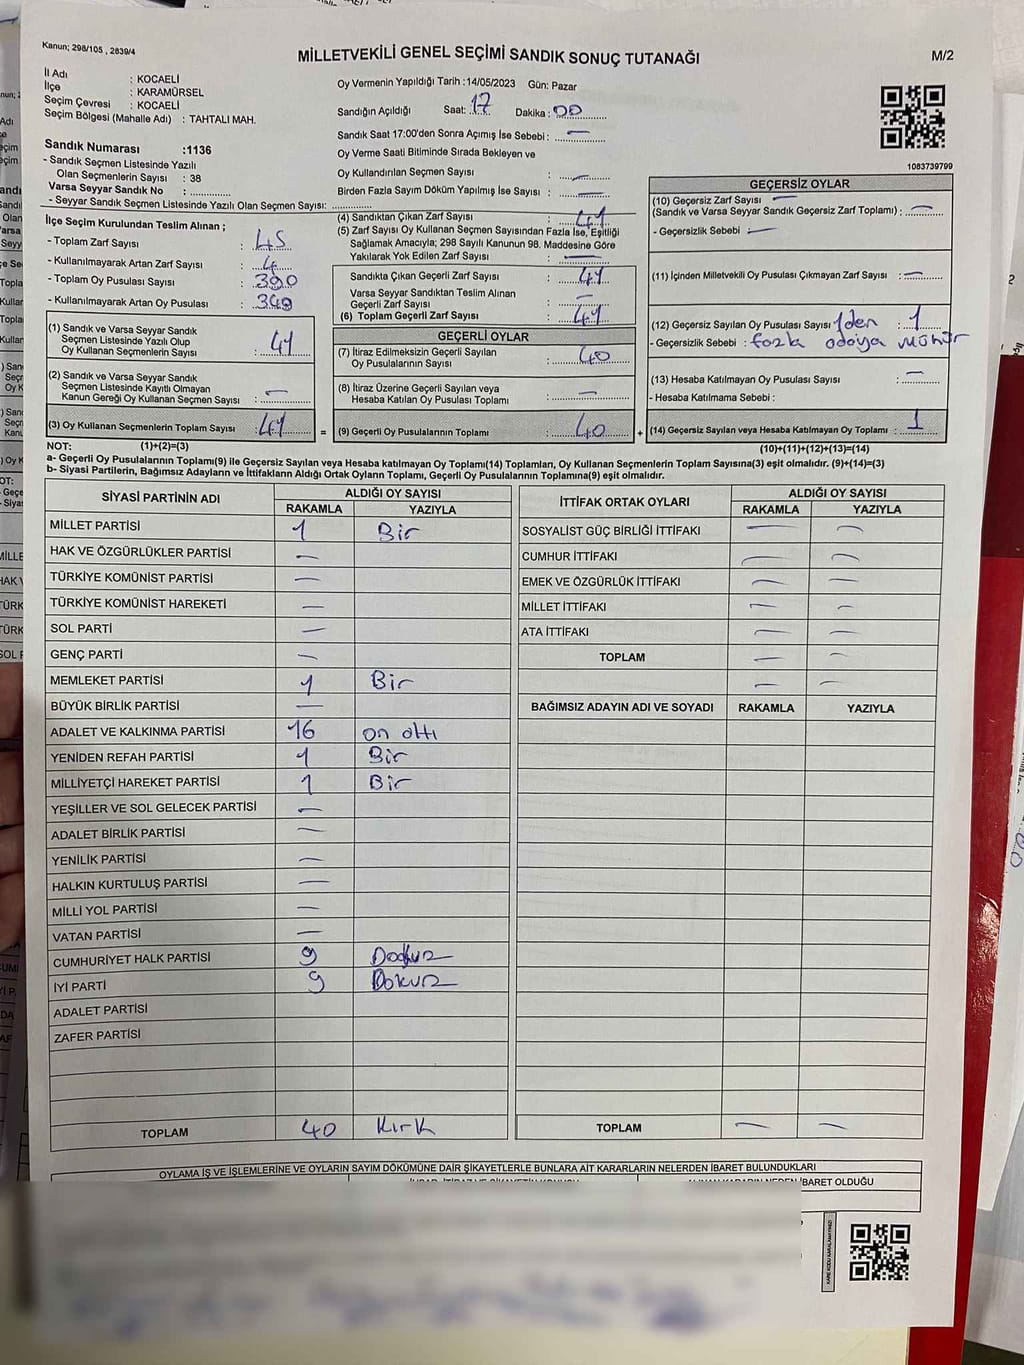 Kanun; 298/105 , 2839/4
MİLLETVEKİLİ GENEL SEÇİMİ SANDIK SONUÇ TUTANAĞI
M/2
İl Adı : KOCAELİ
İlçe : KARAMÜRSEL
Seçim Çevresi : KOCAELİ
Seçim Bölgesi (Mahalle Adı) : TAHTALI MAH.
Sandık Numarası :1136
- Sandık Seçmen Listesinde Yazılı
Olan Seçmenlerin Sayısı : 38
Varsa Seyyar Sandık No : ............
- Seyyar Sandık Seçmen Listesinde Yazılı Olan Seçmen Sayısı: ............
Oy Vermenin Yapıldığı Tarih :14/05/2023 Gün: Pazar
Sandığın Açıldığı Saat: 17 Dakika : 00
Sandık Saat 17:00'den Sonra Açımış İse Sebebi : —
Oy Verme Saati Bitiminde Sırada Bekleyen ve
Oy Kullandırılan Seçmen Sayısı : —
Birden Fazla Sayım Döküm Yapılmış İse Sayısı : —
1083739799
İlçe Seçim Kurulundan Teslim Alınan ;
- Toplam Zarf Sayısı : 45
- Kullanılmayarak Artan Zarf Sayısı : 4
- Toplam Oy Pusulası Sayısı : 390
- Kullanılmayarak Artan Oy Pusulası : 349
(1) Sandık ve Varsa Seyyar Sandık
Seçmen Listesinde Yazılı Olup
Oy Kullanan Seçmenlerin Sayısı : 41
(2) Sandık ve Varsa Seyyar Sandık
Seçmen Listesinde Kayıtlı Olmayan
Kanun Gereği Oy Kullanan Seçmen Sayısı : —
(3) Oy Kullanan Seçmenlerin Toplam Sayısı : 41 =
(4) Sandıktan Çıkan Zarf Sayısı : 41
(5) Zarf Sayısı Oy Kullanan Seçmen Sayısından Fazla İse, Eşitliği
Sağlamak Amacıyla; 298 Sayılı Kanunun 98. Maddesine Göre
Yakılarak Yok Edilen Zarf Sayısı : —
Sandıkta Çıkan Geçerli Zarf Sayısı : 41
Varsa Seyyar Sandıktan Teslim Alınan
Geçerli Zarf Sayısı : —
(6) Toplam Geçerli Zarf Sayısı : 41
GEÇERLİ OYLAR
(7) İtiraz Edilmeksizin Geçerli Sayılan
Oy Pusulalarının Sayısı : 40
(8) İtiraz Üzerine Geçerli Sayılan veya
Hesaba Katılan Oy Pusulası Toplamı : —
(9) Geçerli Oy Pusulalarının Toplamı : 40 +
GEÇERSİZ OYLAR
(10) Geçersiz Zarf Sayısı —
(Sandık ve Varsa Seyyar Sandık Geçersiz Zarf Toplamı) : —
- Geçersizlik Sebebi : —
(11) İçinden Milletvekili Oy Pusulası Çıkmayan Zarf Sayısı : —
(12) Geçersiz Sayılan Oy Pusulası Sayısı 1den : 1
- Geçersizlik Sebebi : fazla odaya mühür
(13) Hesaba Katılmayan Oy Pusulası Sayısı : —
- Hesaba Katılmama Sebebi :
(14) Geçersiz Sayılan veya Hesaba Katılmayan Oy Toplamı : 1
NOT: (1)+(2)=(3) (10)+(11)+(12)+(13)=(14)
a- Geçerli Oy Pusulalarının Toplamı(9) ile Geçersiz Sayılan veya Hesaba katılmayan Oy Toplamı(14) Toplamları, Oy Kullanan Seçmenlerin Toplam Sayısına(3) eşit olmalıdır. (9)+(14)=(3)
b- Siyasi Partilerin, Bağımsız Adayların ve İttifakların Aldığı Ortak Oyların Toplamı, Geçerli Oy Pusulalarının Toplamına(9) eşit olmalıdır.
SİYASİ PARTİNİN ADI ALDIĞI OY SAYISI
RAKAMLA YAZIYLA
MİLLET PARTİSİ 1 Bir
HAK VE ÖZGÜRLÜKLER PARTİSİ —
TÜRKİYE KOMÜNİST PARTİSİ —
TÜRKİYE KOMÜNİST HAREKETİ —
SOL PARTİ —
GENÇ PARTİ —
MEMLEKET PARTİSİ 1 Bir
BÜYÜK BİRLİK PARTİSİ —
ADALET VE KALKINMA PARTİSİ 16 on altı
YENİDEN REFAH PARTİSİ 1 Bir
MİLLİYETÇİ HAREKET PARTİSİ 1 Bir
YEŞİLLER VE SOL GELECEK PARTİSİ —
ADALET BİRLİK PARTİSİ —
YENİLİK PARTİSİ —
HALKIN KURTULUŞ PARTİSİ —
MİLLİ YOL PARTİSİ —
VATAN PARTİSİ —
CUMHURİYET HALK PARTİSİ 9 Dokuz
İYİ PARTİ 9 Dokuz
ADALET PARTİSİ
ZAFER PARTİSİ
TOPLAM 40 Kırk
İTTİFAK ORTAK OYLARI ALDIĞI OY SAYISI
RAKAMLA YAZIYLA
SOSYALİST GÜÇ BİRLİĞİ İTTİFAKI — —
CUMHUR İTTİFAKI — —
EMEK VE ÖZGÜRLÜK İTTİFAKI — —
MİLLET İTTİFAKI — —
ATA İTTİFAKI — —
TOPLAM — —
— —
BAĞIMSIZ ADAYIN ADI VE SOYADI RAKAMLA YAZIYLA
TOPLAM — —
OYLAMA İŞ VE İŞLEMLERİNE VE OYLARIN SAYIM DÖKÜMÜNE DAİR ŞİKAYETLERLE BUNLARA AİT KARARLARIN NELERDEN İBARET BULUNDUKLARI
İBARET OLDUĞU